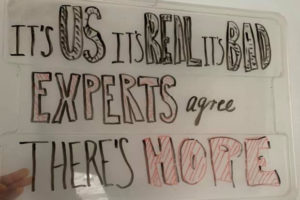 IT'S US IT'S REAL IT'S BAD
EXPERTS agree
THERE'S HOPE